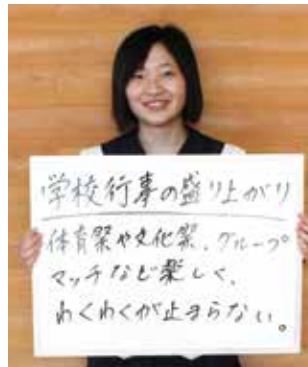 学校行事の盛り上がり
体育祭や文化祭、グループ
マッチなど楽しく、
わくわくが止まらない。